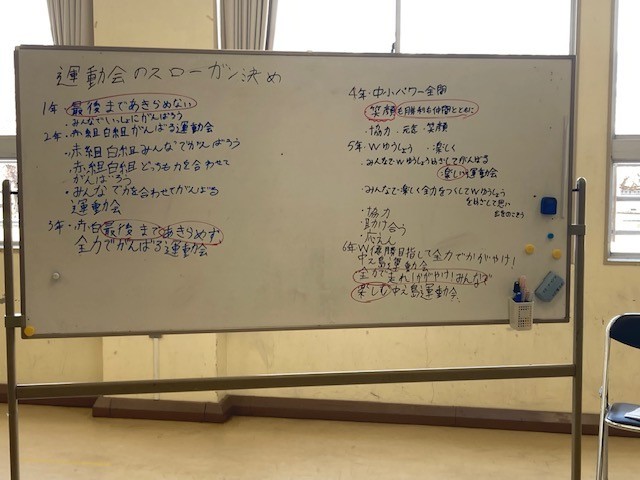 運動会のスローガン決め
1年・最後まであきらめない
・みんなでいっしょにがんばろう
2年・赤組白組がんばる運動会
・赤組白組みんなでがんばろう
・赤組白組どっちも力を合わせて
がんばろう
・みんなで力を合わせてがんばる
運動会
3年・赤白最後まであきらめず
全力でがんばる運動会
4年・中小パワー全開
笑顔も勝利も仲間とともに
・協力・元気・笑顔
5年・Wゆうしょう ・楽しく
・みんなでWゆうしょうめざしてがんばる
楽しい運動会
・みんなで楽しく全力をつくしてWゆうしょう
をめざして思い
出をのこそう
・協力
・助け合う
・応えん
6年・W優勝目指して全力でかがやけ!
中之島運動会
・全力で走れ!かがやけ!みんなで
楽しむ中之島運動会